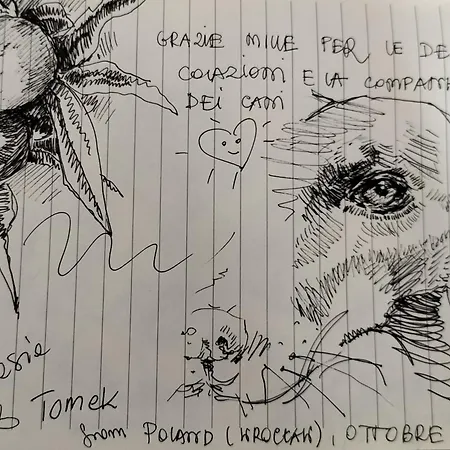 GRAZIE MILLE PER LE DE
COLAZIONI E LA COMPAN
DEI CANI
Tomek
from POLAND (WROCŁAW), OTTOBRE